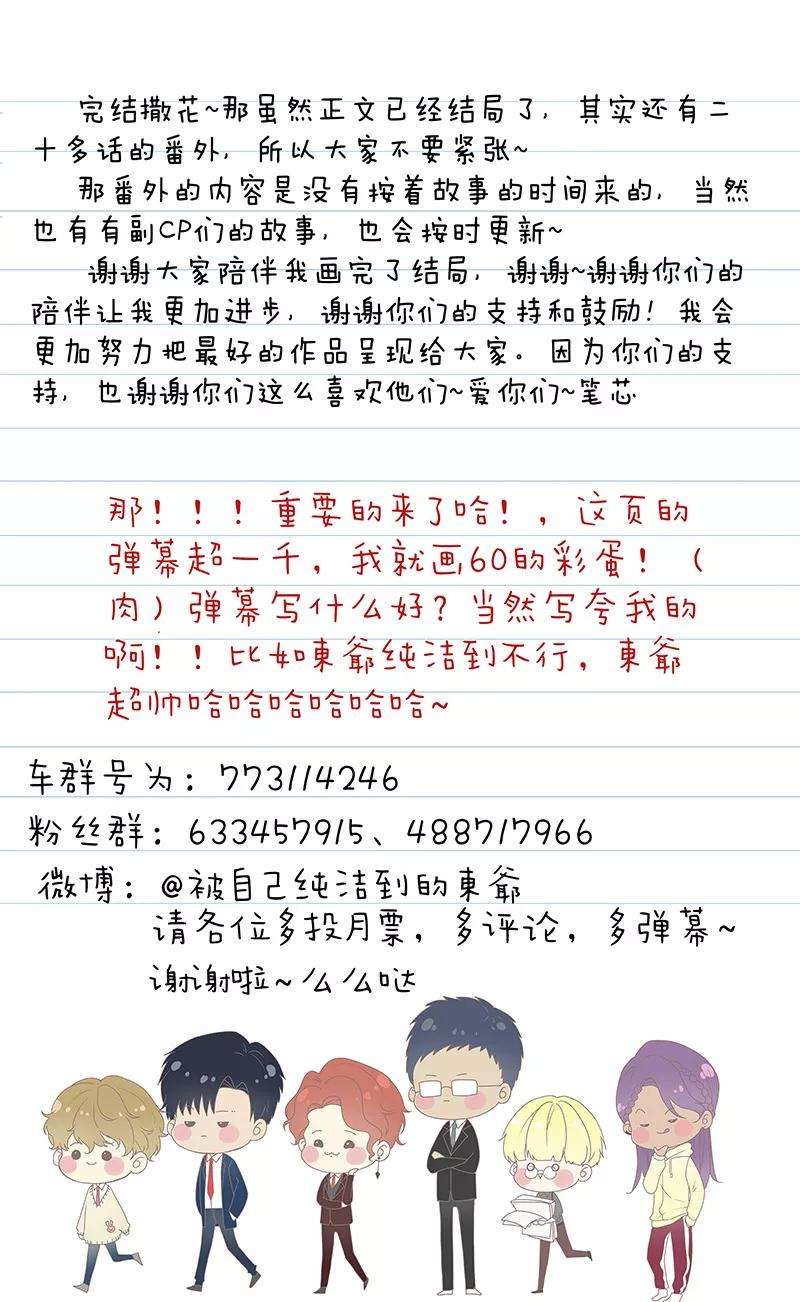 完结撒花~那虽然正文已经结局了，其实还有二
十多话的番外，所以大家不要紧张~
那番外的内容是没有按着故事的时间来的，当然
也有有副CP们的故事，也会按时更新~
谢谢大家陪伴我画完了结局，谢谢~谢谢你们的
陪伴让我更加进步，谢谢你们的支持和鼓励！我会
更加努力把最好的作品呈现给大家。因为你们的支
持，也谢谢你们这么喜欢他们~爱你们~笔芯
那！！！重要的来了哈！，这页的
弹幕超一千，我就画60的彩蛋！（
肉）弹幕写什么好？当然写夸我的
啊！！比如東爺纯洁到不行，東爺
超帅哈哈哈哈哈哈~
车群号为：773114246
粉丝群：633457915、488717966
微博：@被自己纯洁到的東爺
请各位多投月票，多评论，多弹幕~
谢谢啦~么么哒